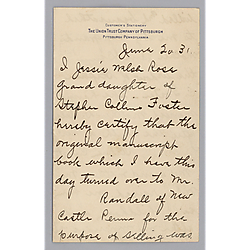 CUSTOMER'S STATIONERY
THE UNION TRUST COMPANY OF PITTSBURGH
PITTSBURGH PENNSYLVANIA
June 20. 31.
I Jessie Walsh Rose
grand daughter of
Stephen Collins Foster
hereby certify that this
original manuscript
book which I have this
day turned over to Mr.
Randall of New
Castle Penna for the
purpose of selling was